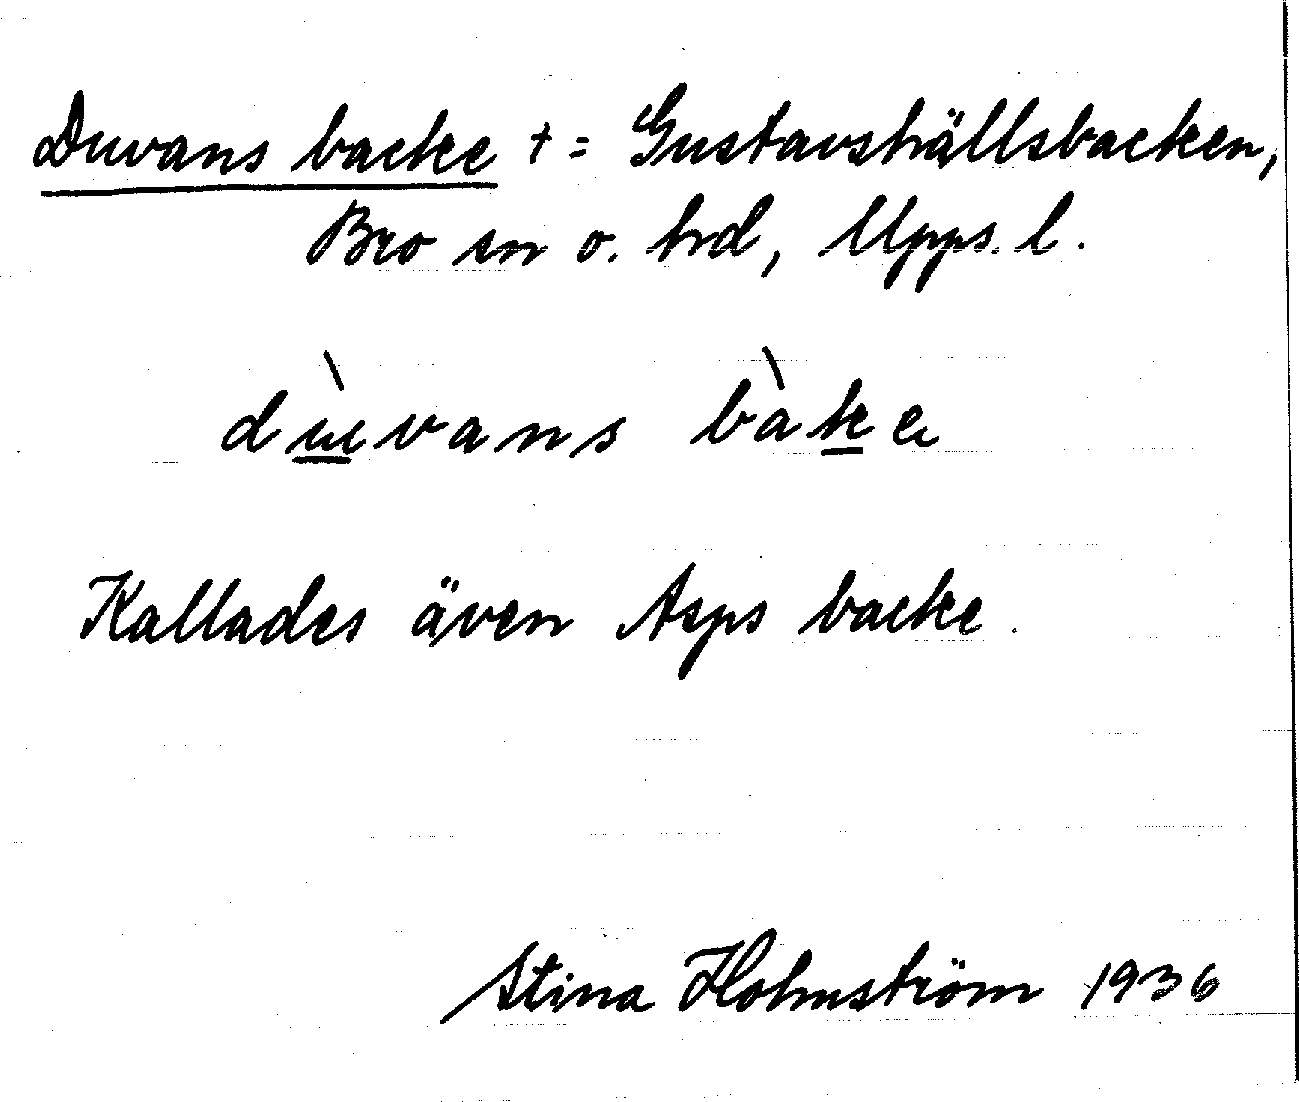 Duvans backe † = Gustavshällsbacken,
Bro sn o. hd, Upps. l.
dùvans bàke
Kallades även Asps backe.
Stina Holmström 1936